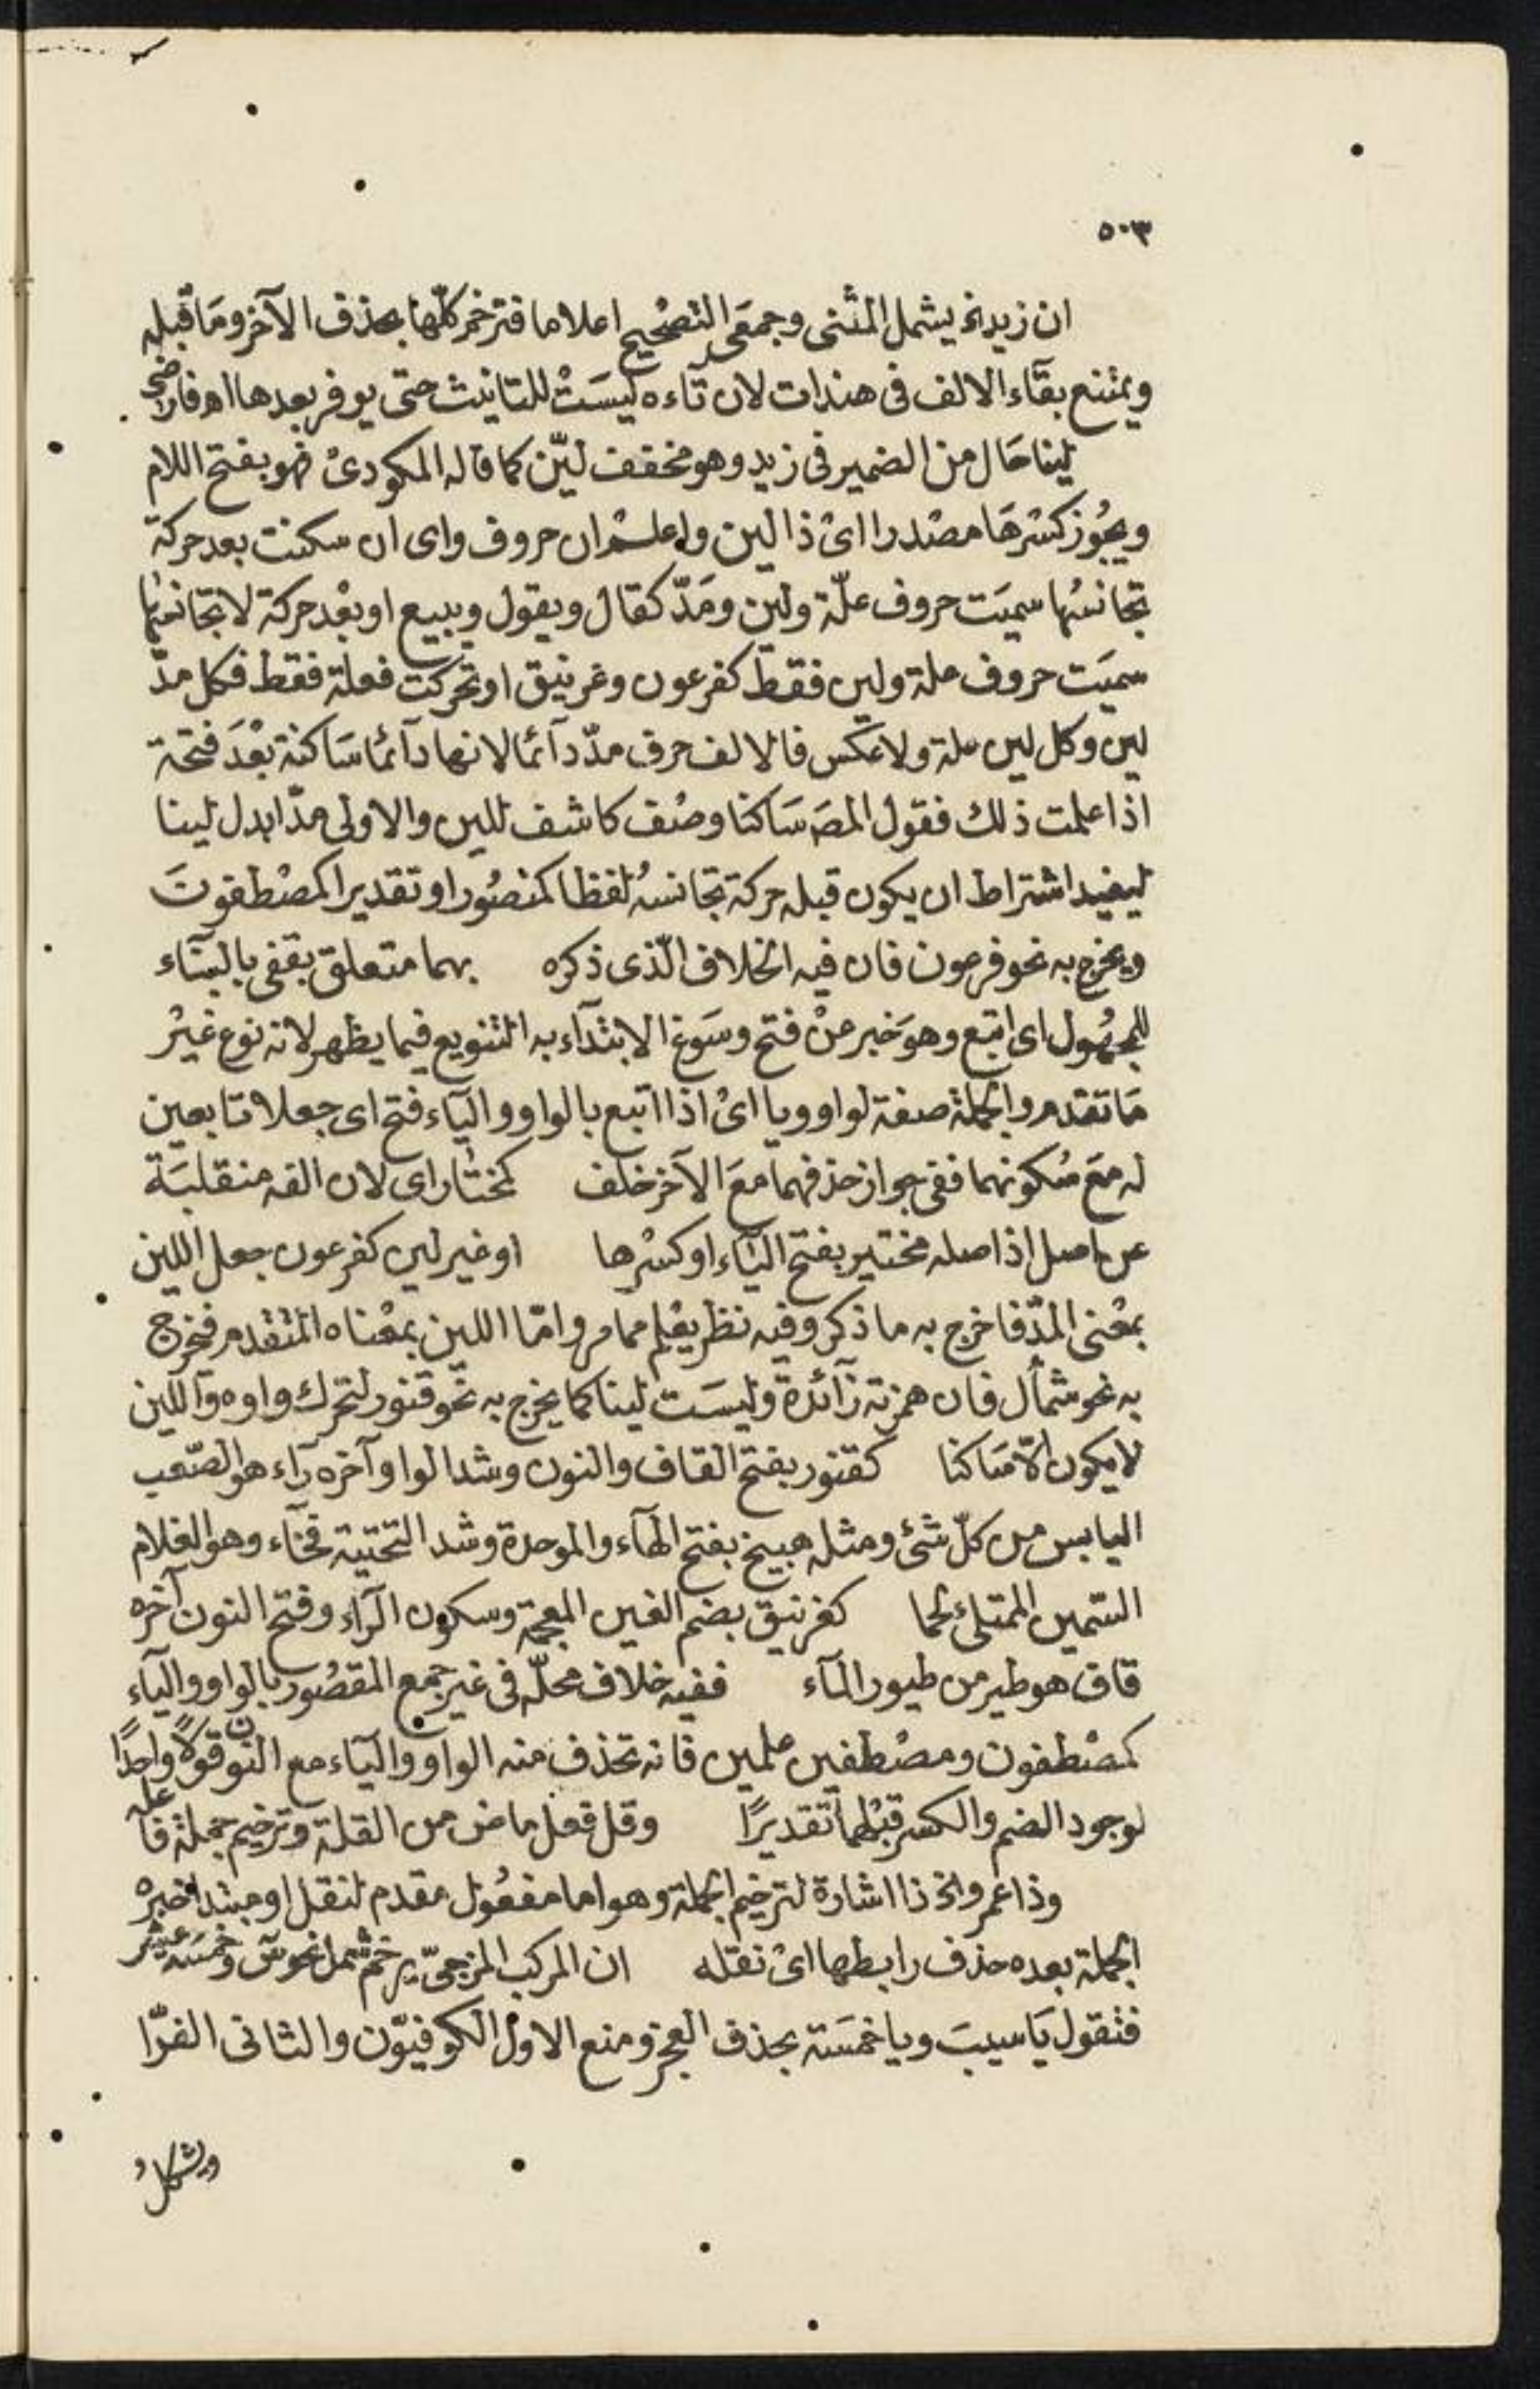 ٥٠٣
ان زيد الخ يشمل المثنى وجمعى التصحيح اعلاما فترخم كلّها بحذف الآخر ومَا قبله
ويمتنع بقآء الالف فى هندات لان تآءه ليسَتْ للتانيث حتى يوفر بعدها اهـ فارضى
لينا حَال من الضمير فى زيد وهو مخفف ليّن كما قاله المكودىْ فهو بفتح اللام
ويجُوز كسْرهَا مصْدرا اىْ ذا لين واعلمْ ان حروف واى ان سكنت بعد حركة
تجانسُها سميَت حروف علّة ولين ومَدّ كقال ويقول ويبيع او بعْد حركة لا تجانسُها
سميَت حروف علة ولين فقط كفرعون وغرنيق او تحركت فعلة فقط فكل مدّ
لين وكل لين علة ولا عكس فالالف حرف مدّ دآئما لانها دآئما سَاكنة بعْدَ فتحة
اذا علمت ذلك فقول المصَ سَاكنا وصْف كاشف للين والاولى مدّا بدل لينا
ليفيد اشتراط ان يكون قبله حركة تجانسُه لفظا كمنصُور او تقديرا كمصْطفوتَ
ويخرج به نحو فرعون فان فيه الخلاف الّذى ذكره بهما متعلق بقفى بالبنآء
للمجهُول اى اتبع وهوَ خبر منْ فتح وسَوغ الابتدآء به التنويع فيما يظهر لانه نوع غيْر
مَا تقدم والجملة صفة لواو ويا اىْ اذا اتبع بالواو واليآء فتح اى جعلا تابعين
له مَع سُكونهما ففى جواز حذفهما معَ الآخر خلف كمختار اى لان الفه منقلبَة
عن اصل اذ اصله مختير بفتح اليآء او كسْرها او غير لين كفرعون جعل اللين
بمعْنى المدّ فاخرج به ما ذكر وفيه نظر يعْلم مما مر وامّا اللين بمعْناه المتقدم فخرج
به نحو شمأل فان همزته زآئدة وليسَت لينا كما يخرج به نحو قنور لتحرك واوه واللين
لا يكون الّا سَاكنا كقنور بفتح القاف والنون وشد الواو وآخره رآء هو الصّعب
اليابس من كلّ شئ ومثله هبيخ بفتح الهآء والموحدة وشد التحتية فخآء وهو الغلام
السّمين الممتلئ لحما كغرنيق بضم الغين المعجمة وسكون الرآء وفتح النون آخره
قاف هو طير من طيور المآء ففيه خلاف محلّه فى غير جمع المقصُور بالواو واليآء
كمصْطفون ومصْطفين علمين فانه تحذف منه الواو واليآء مع النون قولًا واحدًا
لوجود الضم والكسر قبْلهما تقديرًا وقل فعل ماض من القلة وترخيم جملة فاعله
وذا عمرو الخ ذا اشارة لترخيم الجملة وهو اما مفعُول مقدم لنقل او مبتدا خبره
الجملة بعده حذف رابطها اىْ نقله ان المركب المزجىّ يرخم شمل نحو وخمسَة عشر
فتقول يَا سيبَ ويا خمسَة بحذف العجز ومنع الاول الكوفيوّن والثانى الفرّا
ويشكل